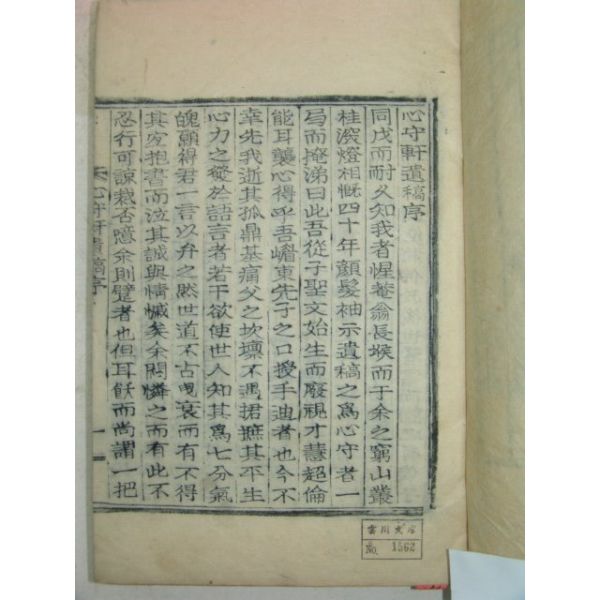 心守軒遺稿序
同戊而耐久知我者惺菴翁長堠而于余之窮山叢
桂潑燈相慨四十年顔髮袖示遺稿之爲心守者一
局而掩涕曰此吾從子聖文始生而廢視才慧超倫
能耳龔心得乎吾嵋東先子之口授手迪者也今不
幸先我逝其孤鼎基痛父之坎壈不遇捃摭其平生
心力之發於語言者若干欲使世人知其爲七分氣
魄願得君一言以弁之然世道不古曳衰而有不得
其安抱書而泣其誠與情慽矣余悶憐之而有此不
忍行可諒裁否隱余則躄者也但耳飫而尚謂一把
心守軒遺稿序
一
雲川文庫
No. 1562